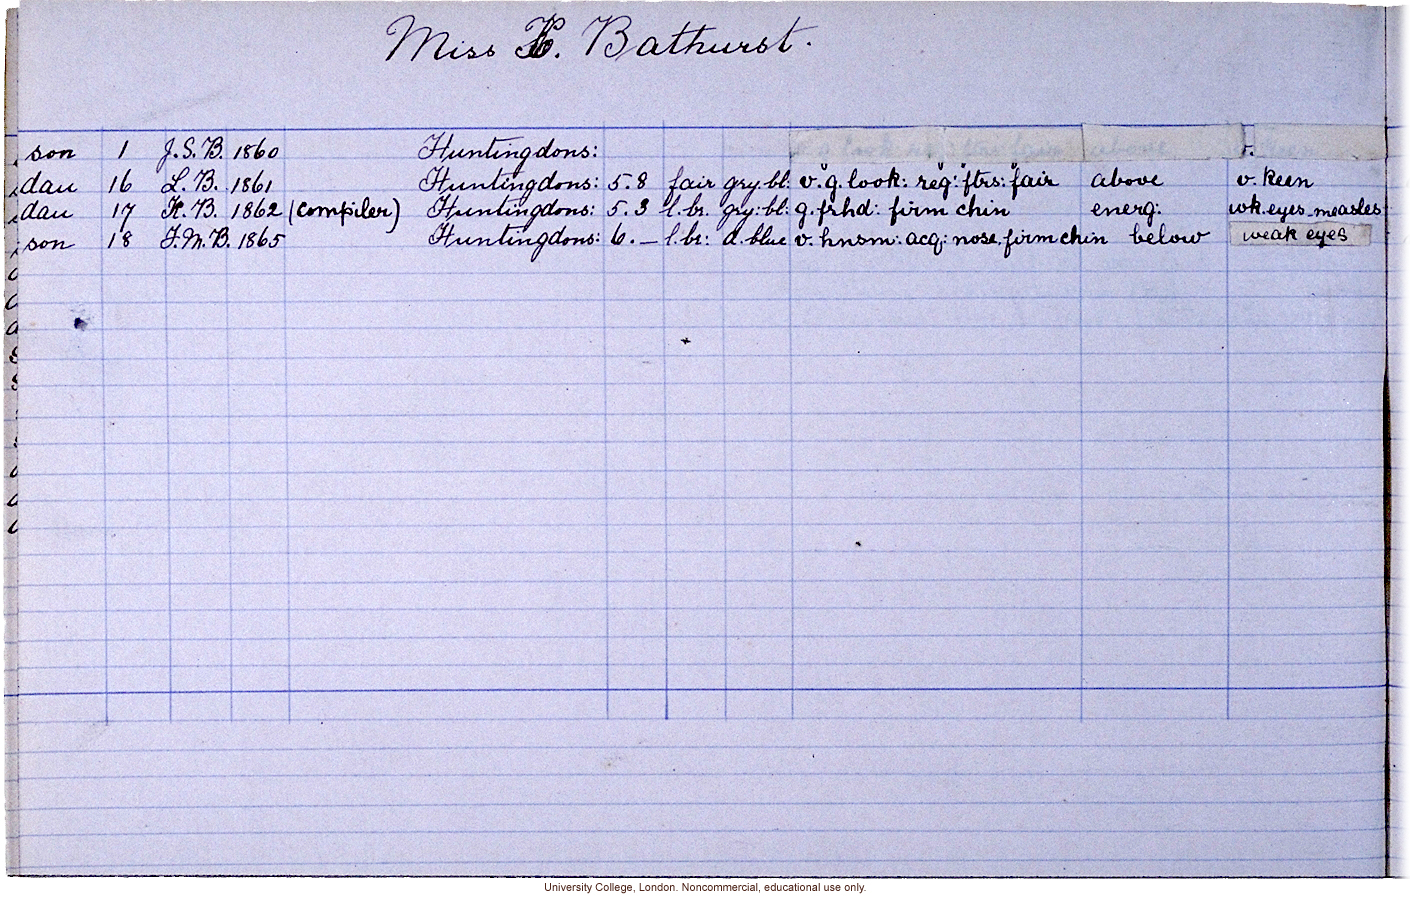 Miss K. Bathurst.
son 1 J.S.B. 1860 Huntingdons:
dau 16 L.B. 1861 Huntingdons: 5.8 fair gry.bl: v.g.look: reg: ftrs: fair above v. keen
dau 17 K.B. 1862 (compiler) Huntingdons: 5.3 l.br. gry:bl: g.frhd: firm chin energ: wk.eyes-measles
son 18 F.M.B. 1865 Huntingdons: 6.— l.br: d.blue v. hnsm: acq: nose, firm chin below weak eyes
University College, London. Noncommercial, educational use only.